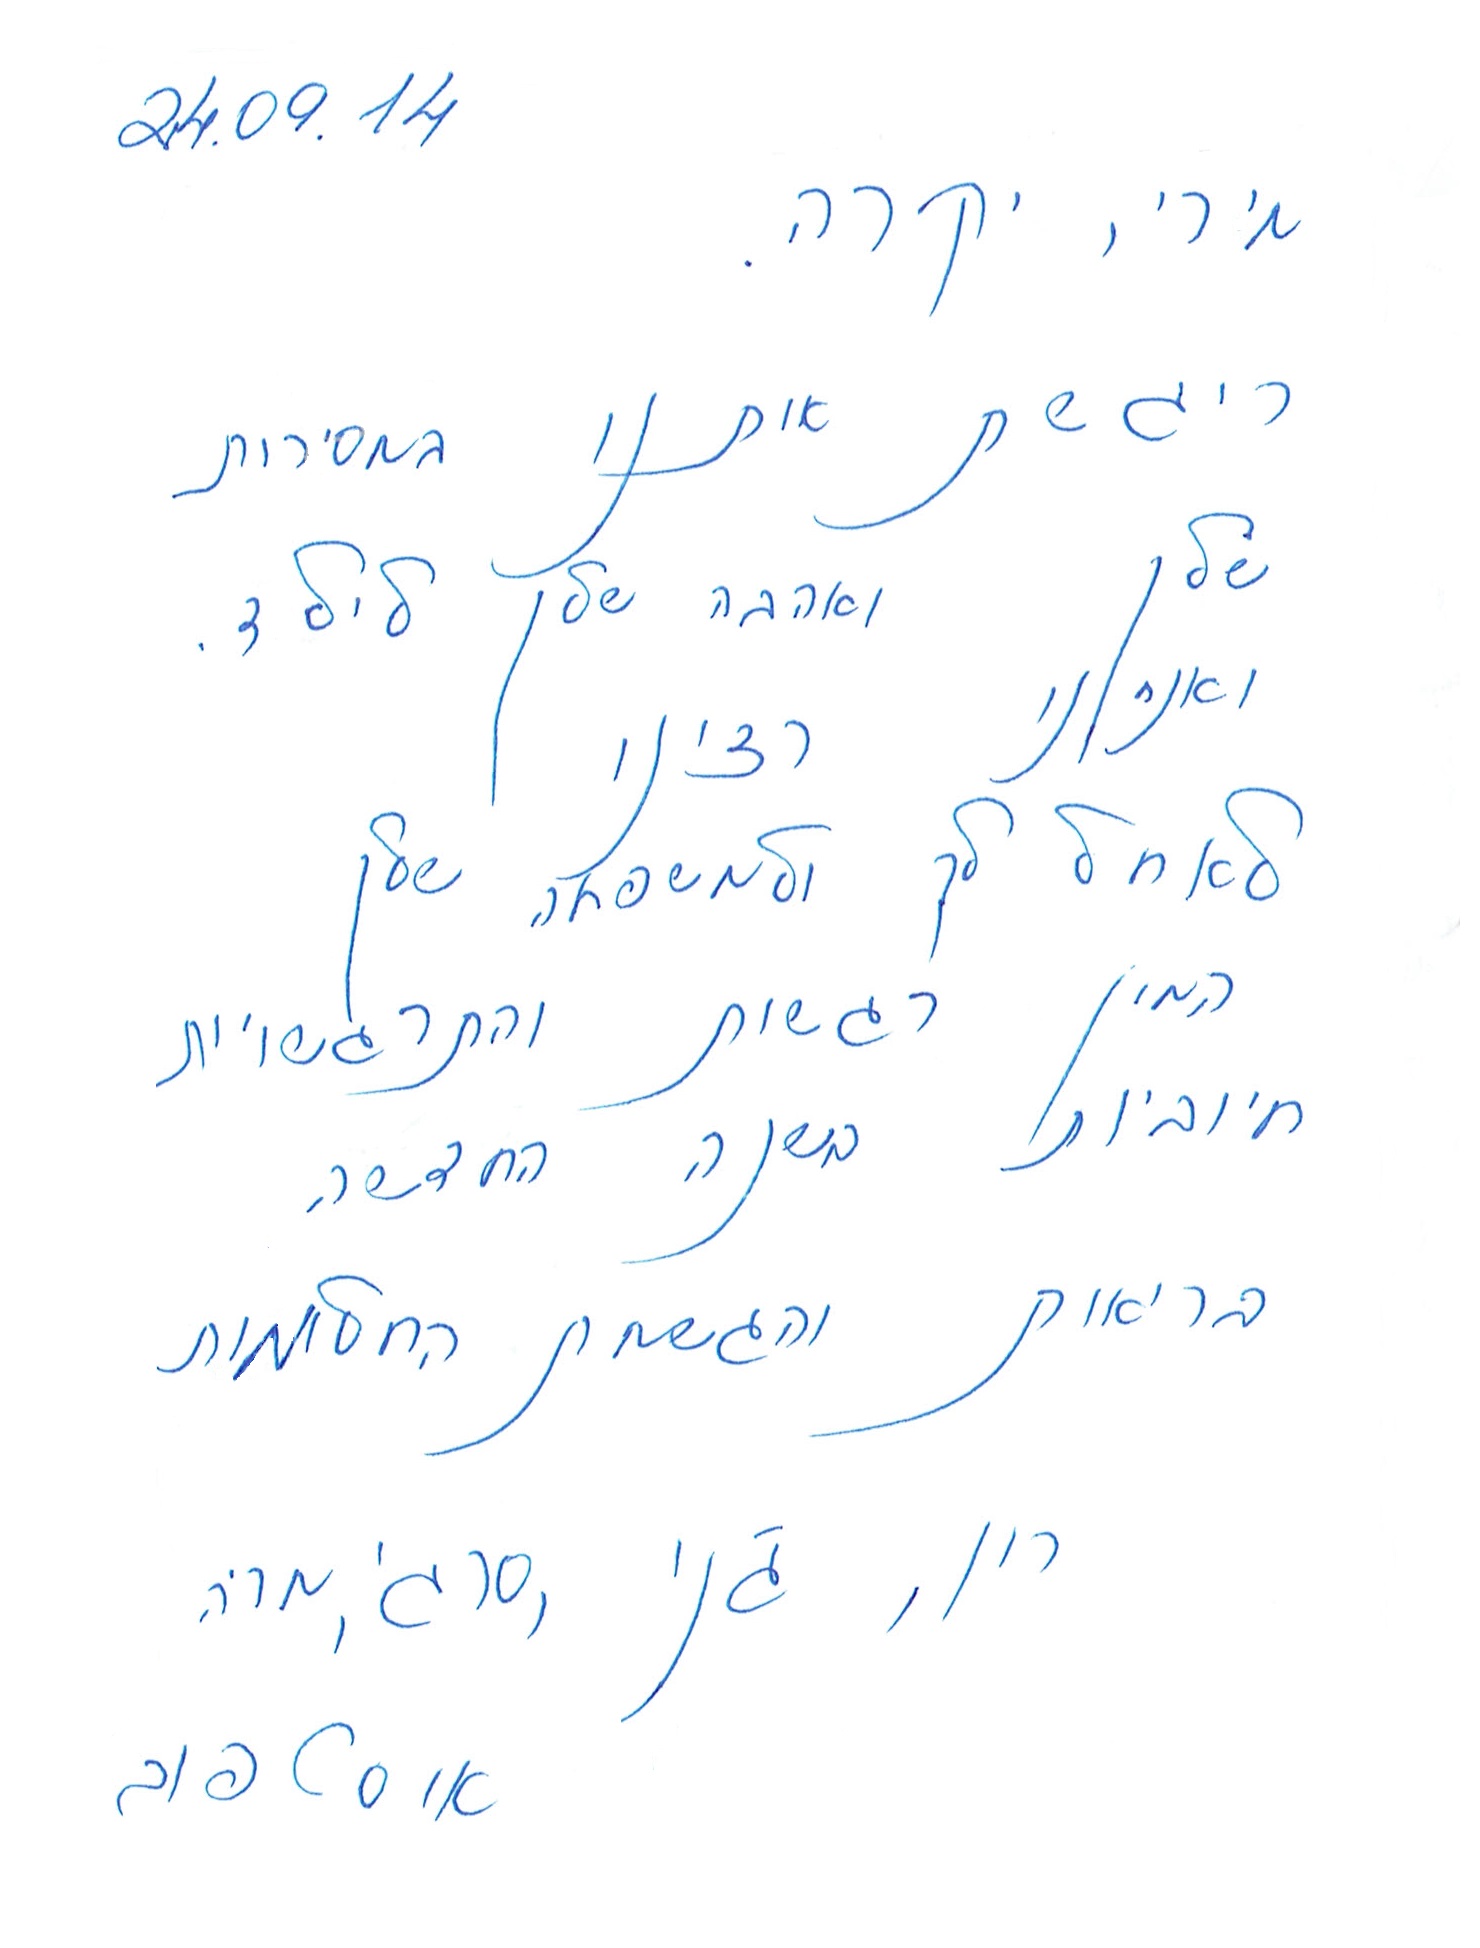 24.09.14
מירי, יקרה.
ריגשת אותנו במסירות
שלך ואהבה שלך לילד.
ואנחנו רצינו
לאחל לך ולמשפחה שלך
המון רגשות והתרגשויות
חיוביות בשנה החדשה
בריאות והגשמת החלומות
רון, ג'ני, סרגי, מריה
אוסיפוב